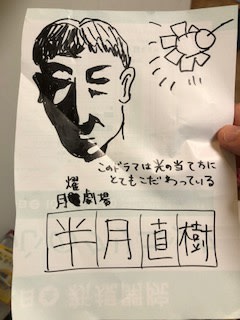 このドラマは光の当て方に
とてもこだわっている
月燿劇場
半月直樹